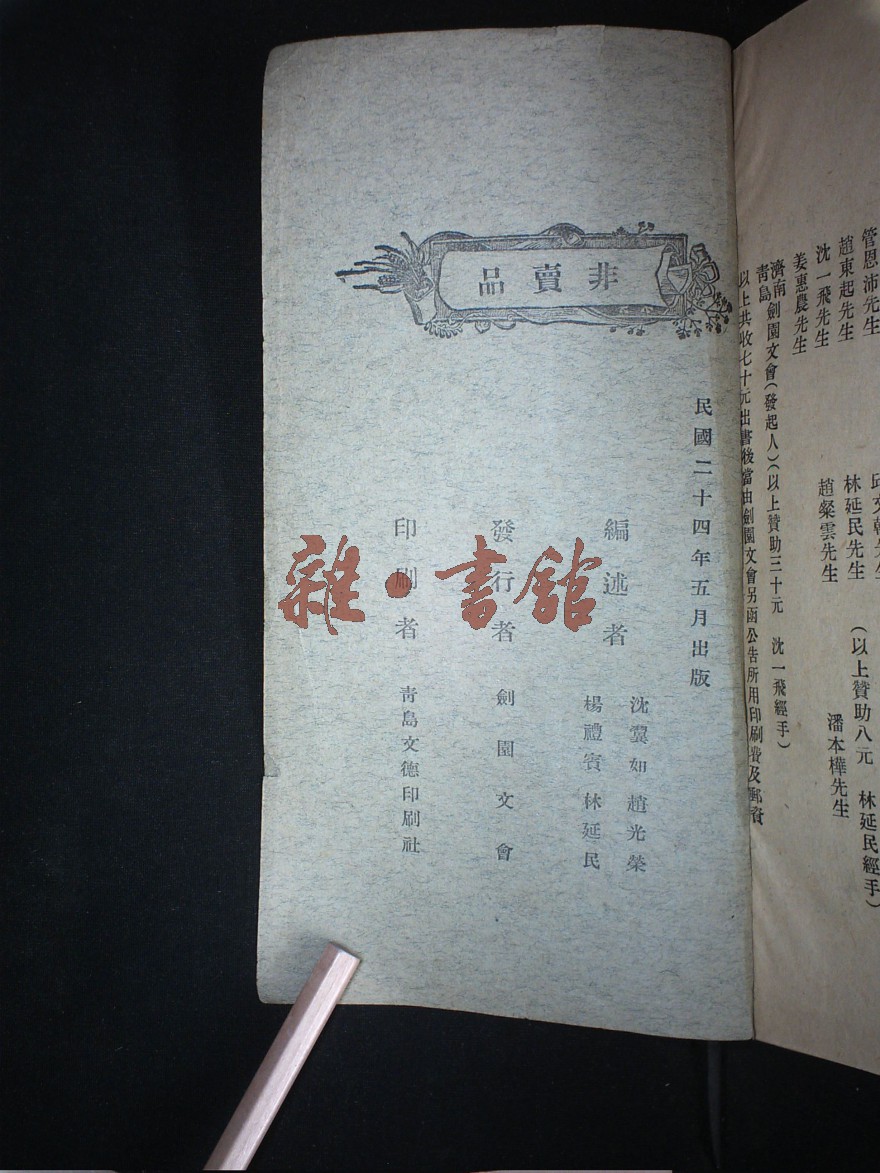 管恩沛先生
趙東起先生
沈一飛先生
姜惠農先生
林延民先生
趙粲雲先生
(以上贊助八元 林延民經手)
潘本樺先生
濟南
青島
劍園文會(發起人)(以上贊助三十元 沈一飛經手)
以上共收七十元出書後當由劍園文會另函公告所用印刷費及郵資
非賣品
民國二十四年五月出版
編述者
沈翼如 趙光榮
楊禮賓 林延民
發行者 劍園文會
印刷者 青島文德印刷社
雜·書館